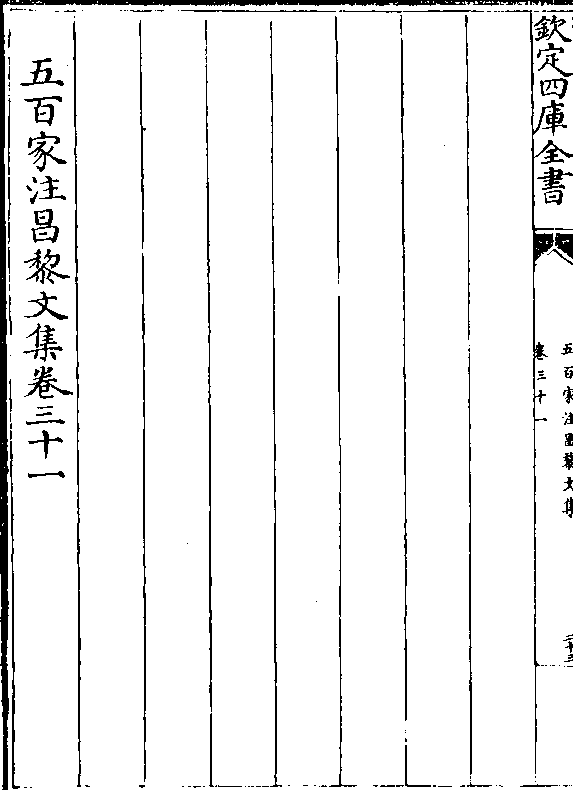 欽定四庫全書
五百家注昌黎文集
卷三十一
五百家注昌黎文集卷三十一